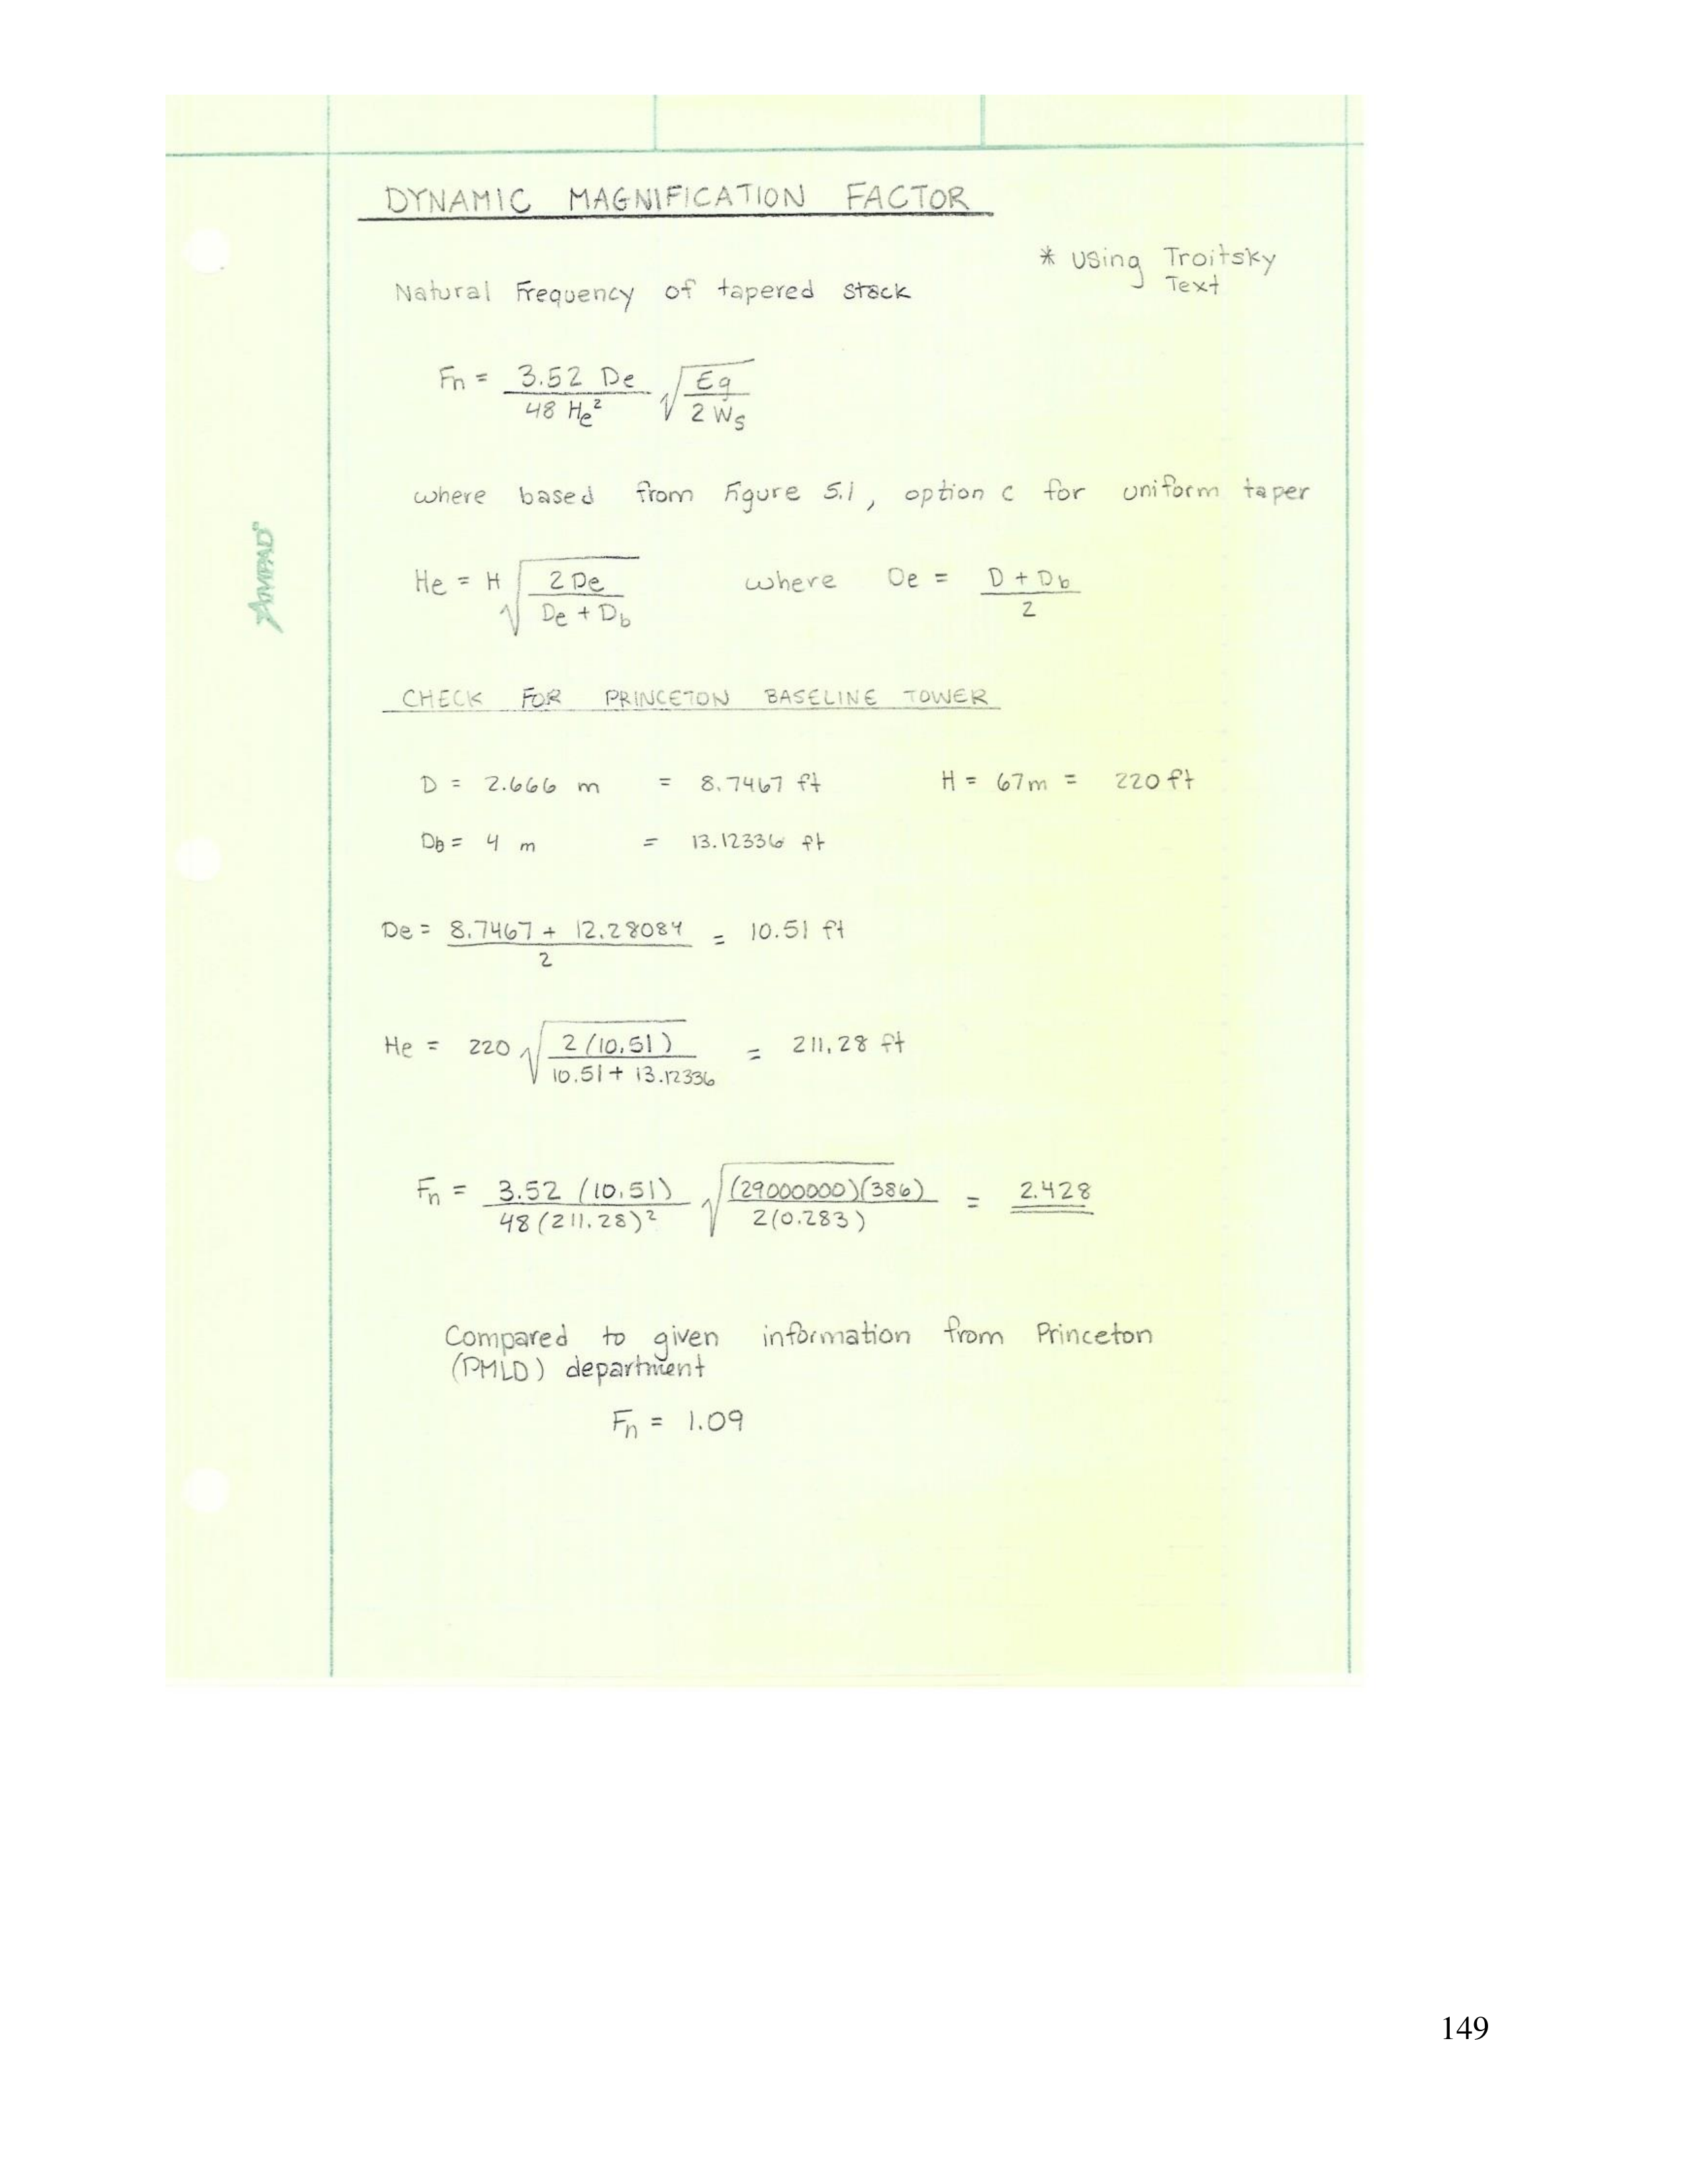 DYNAMIC MAGNIFICATION FACTOR
* Using Troitsky
Text
Natural Frequency of tapered stack
Fn = 3.52 De / 48 He² √(Eg / 2 Ws)
where based from Figure 5.1, option c for uniform taper
He = H √(2 De / De + Db) where De = D + Db / 2
AMPAD®
CHECK FOR PRINCETON BASELINE TOWER
D = 2.666 m = 8.7467 ft H = 67m = 220 ft
Db = 4 m = 13.12336 ft
De = 8.7467 + 12.28084 / 2 = 10.51 ft
He = 220 √(2 (10.51) / 10.51 + 13.12336) = 211.28 ft
Fn = 3.52 (10.51) / 48 (211.28)² √((29000000)(386) / 2(0.283)) = 2.428
Compared to given information from Princeton
(PMLD) department
Fn = 1.09
149